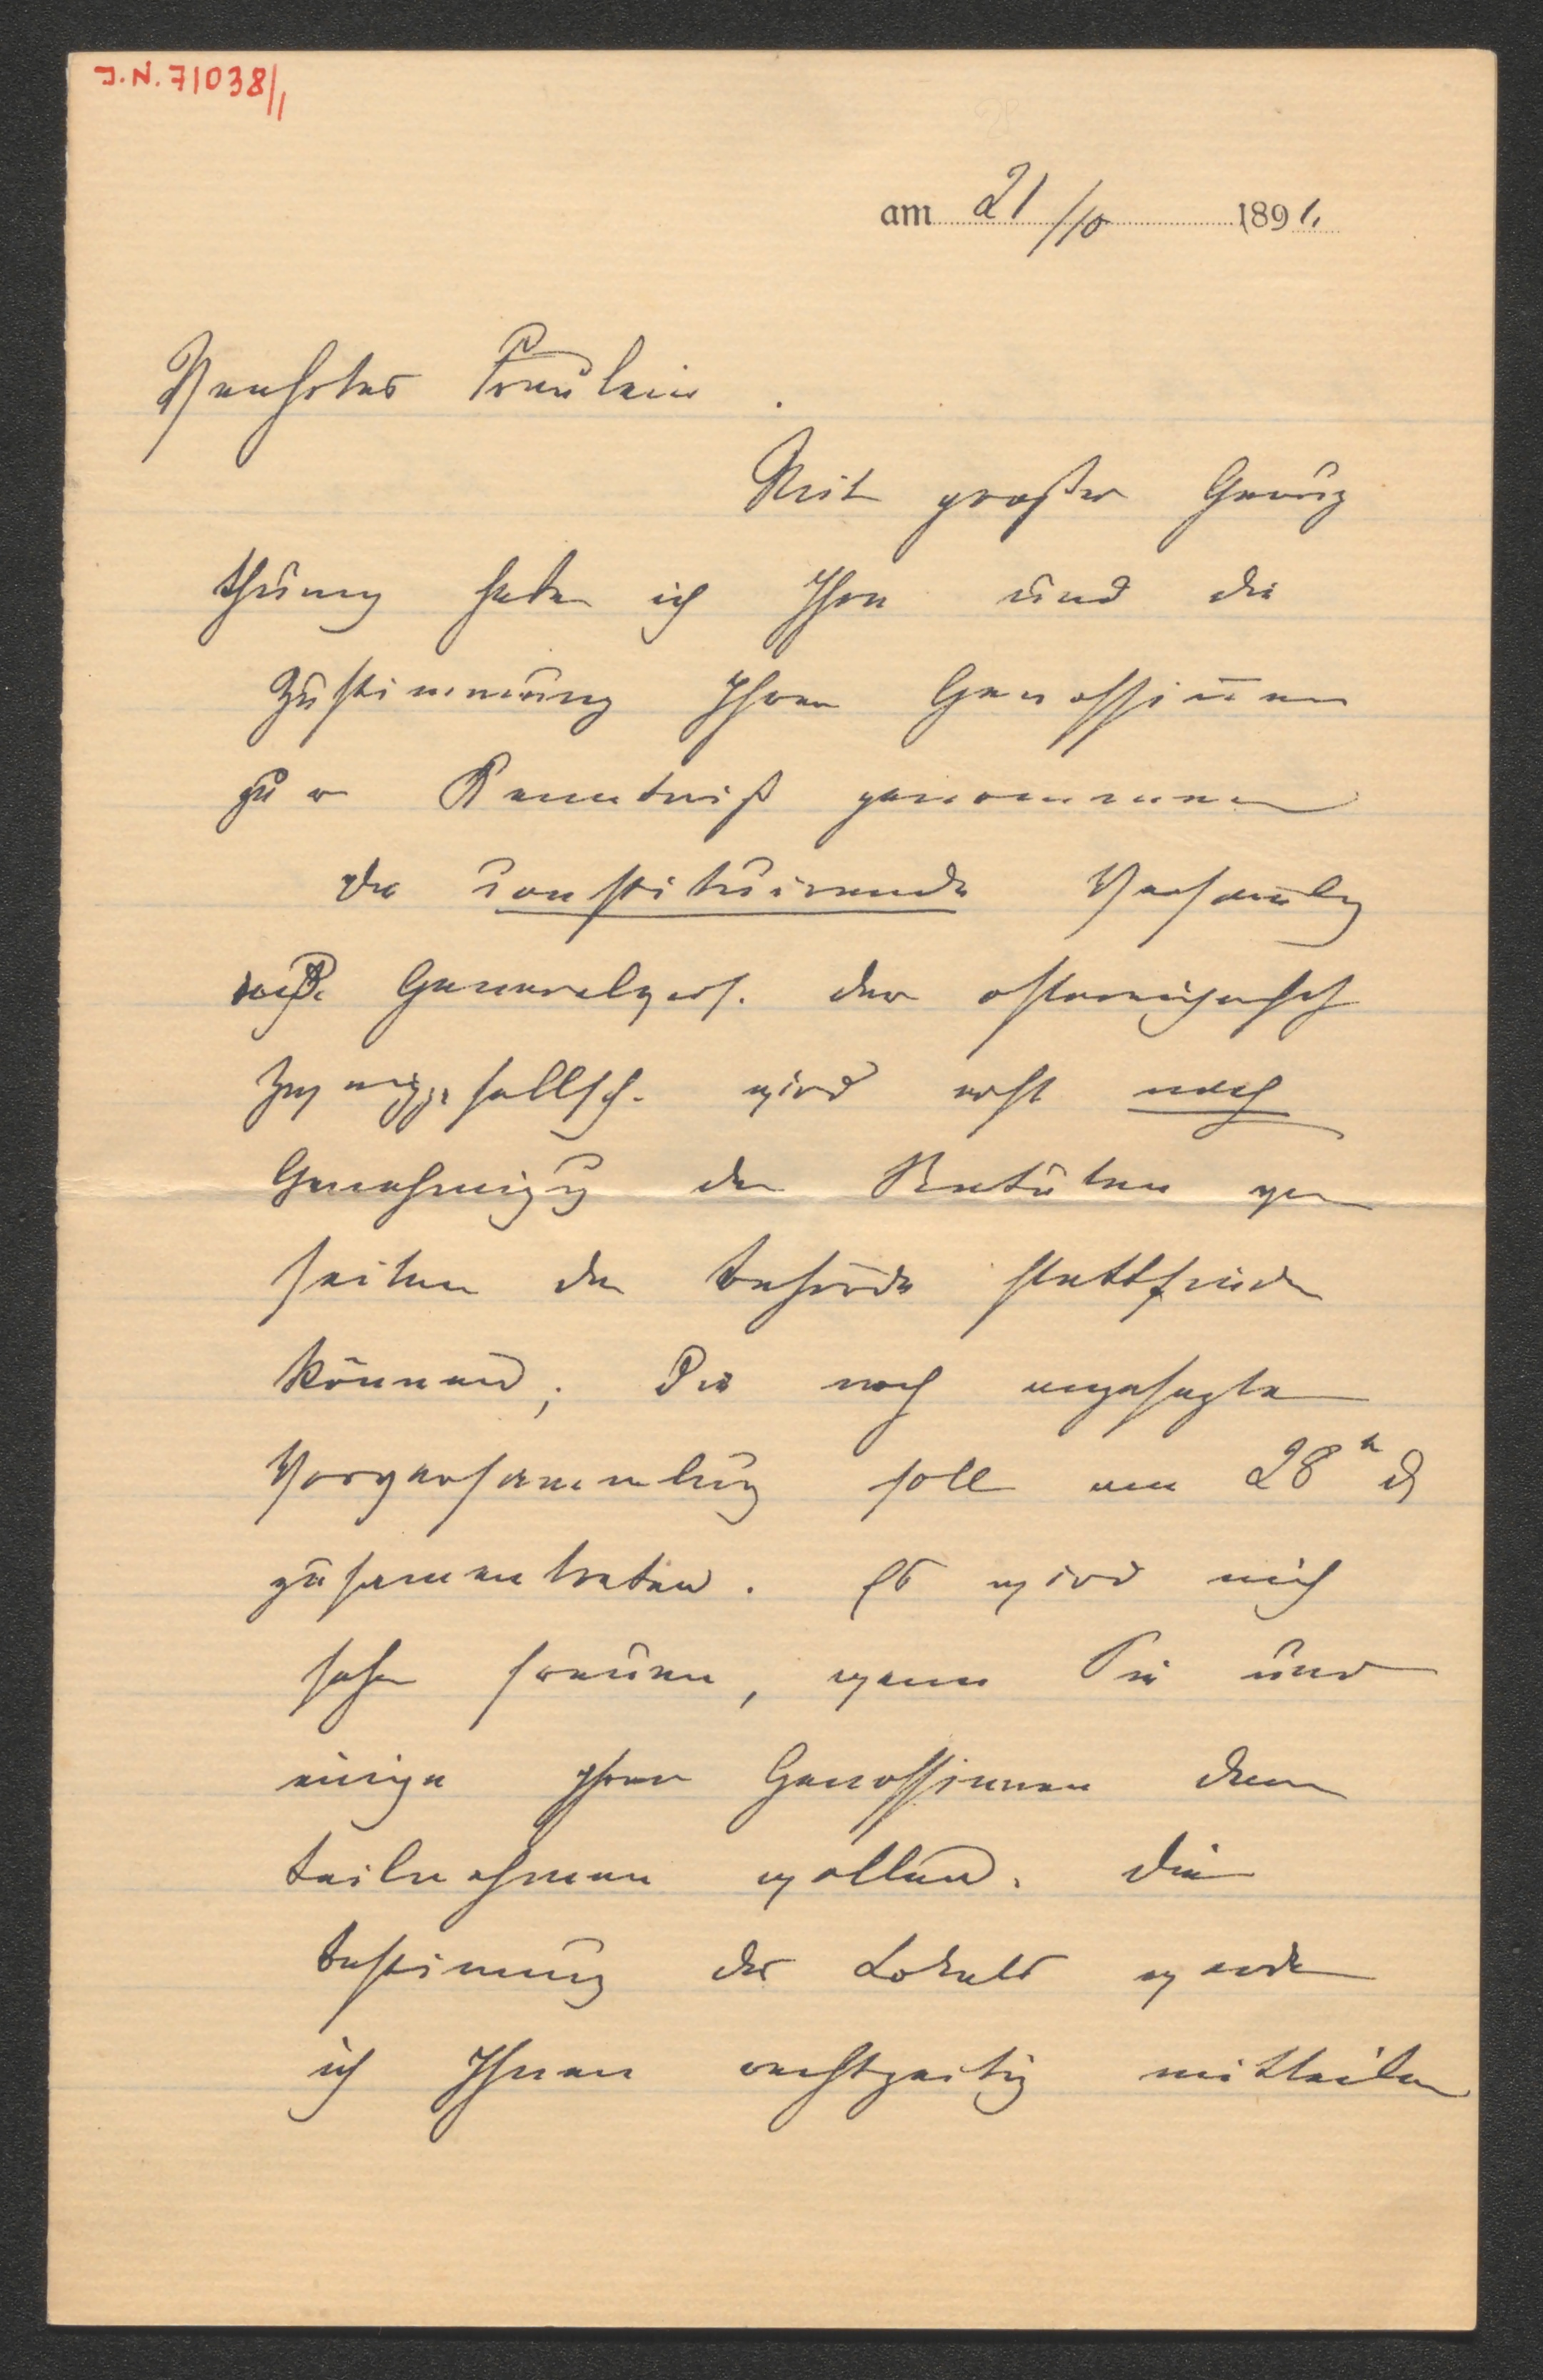 J.N. 71038/1
am 21/10 1891.
Verehrtes Fräulein.
Mit großer Genug
thuung habe ich Ihre und die
Zustimmung Ihrer Genossiñen
zur Kenntniß genommen
die constituirende Versamlg
resp. Generalvers. der österreichisch
Zweiggesellsch. wird erst nach
Genehmigug der Statuten von
seiten der Behörde stattfinden
können; Die noch angesagte
Vorversammlung soll am 28n d
zusammentreten. Es wird mich
sehr freuen, wenn Sie und
einige Ihrer Genossinnen daran
teilnehmen wollen. Die
Bestimung des Lokals werde
ich Ihnen rechtzeitig mitteilen